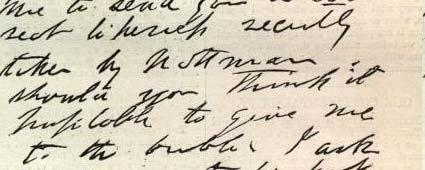 me to send you a
rect likeness recently
taken by Nottman
should you think it
to give me
to the public I ask